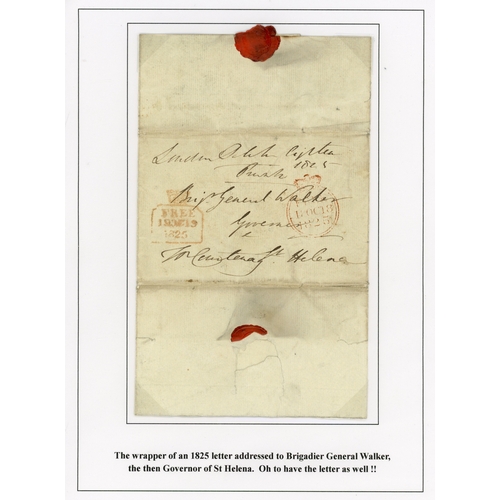 London
1825
Private
Brigr General Walker
Governor
St Helena
FREE
1825
The wrapper of an 1825 letter addressed to Brigadier General Walker,
the then Governor of St Helena. Oh to have the letter as well !!